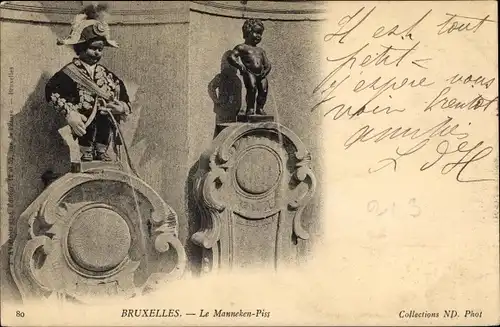 Il est tout
petit —
J'espère vous
voir bientôt
amitiés
213
80 BRUXELLES. — Le Manneken-Piss Collections ND. Phot